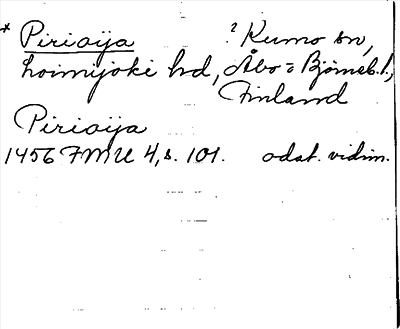 * Piriaija ? Kumo sn,
Loimijoki hd, Åbo = Björneb. l.,
Finland
Piriaija
1456 FMU 4, s. 101. odat. vidim.